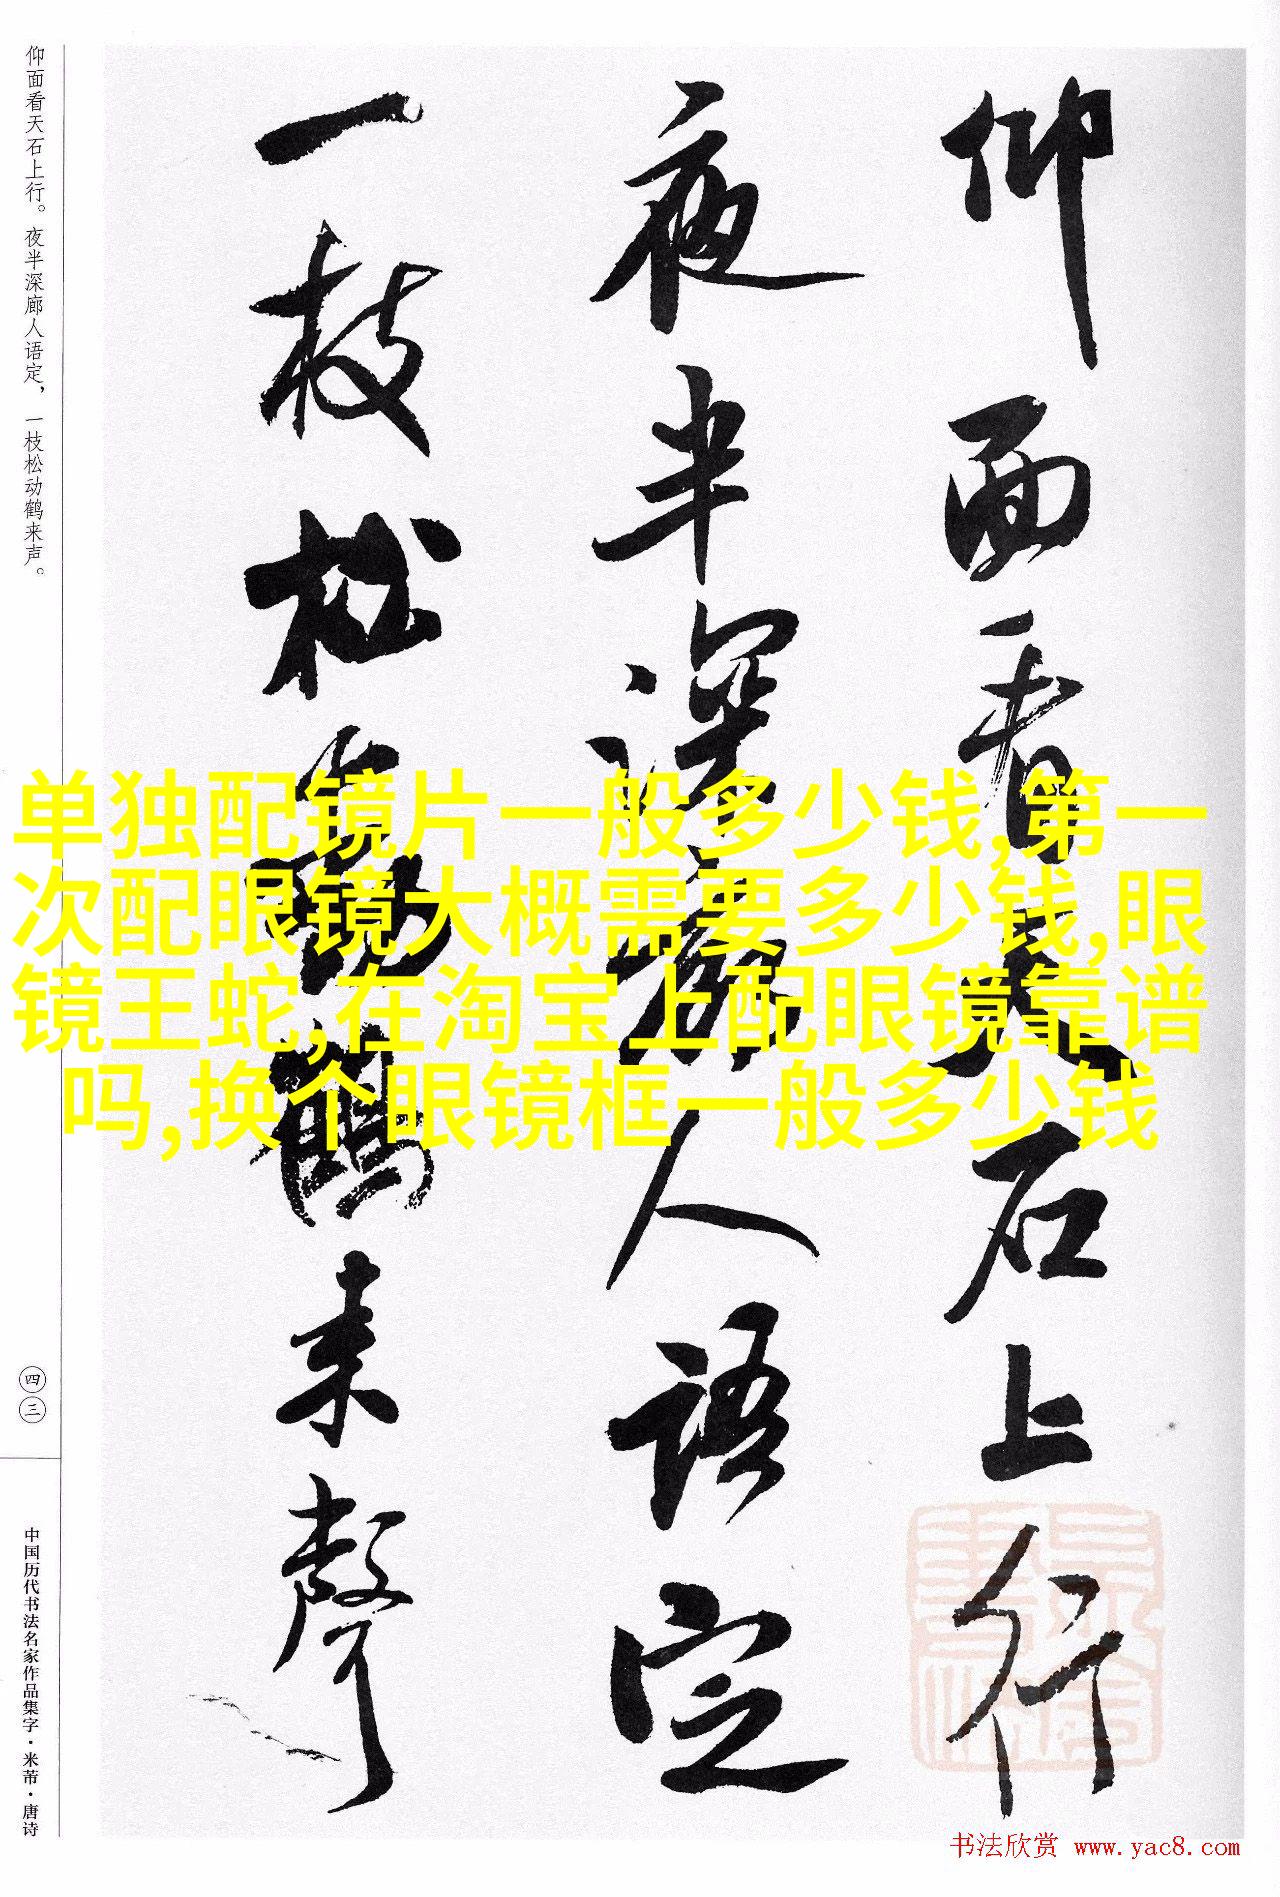 仰面看天石上行
夜半深廊人语定
一枝松动鹤来声
仰面看天石上行。夜半深廊人语定，一枝松动鹤来声。
四三
中国历代书法名家作品集字·米芾·唐诗
单独配镜片一般多少钱,第一
次配眼镜大概需要多少钱,眼
镜王蛇,在淘宝上配眼镜靠谱
吗,换个眼镜框一般多少钱
书法欣赏 www.yac8.com